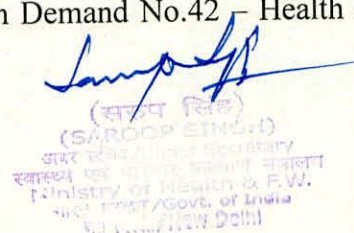 n Demand No.42 – Health
(सरुप सिंह)
(SAROOP SINGH)
अवर सचिव/Under Secretary
स्वास्थ्य एवं परिवार कल्याण मंत्रालय
Ministry of Health & F.W.
भारत सरकार/Govt. of India
नई दिल्ली/New Delhi